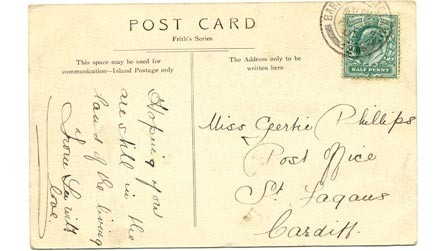 POST CARD
Frith's Series
This space may be used for
communication—Inland Postage only
The Address only to be
written here
HALF PENNY
Hoping you
are still in the
land of the living
From
love.
Miss Gertie Phillips
Post Office
St Fagans
Cardiff.